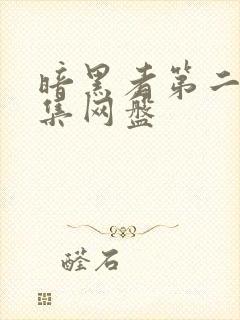 暗黑者第二
集网盘
醛石